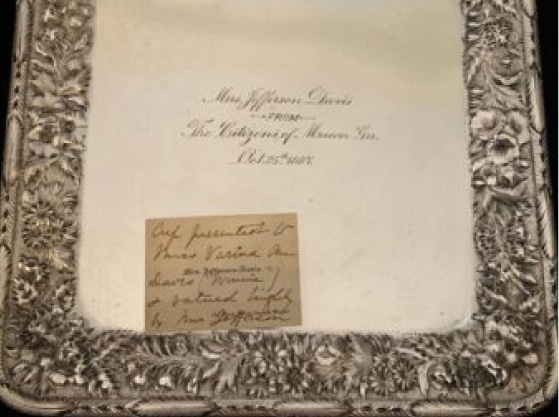 Mrs. Jefferson Davis
FROM
The Citizens of Macon Ga.
Oct. 25th 1887.
Cup presented to
Miss Varina Ann
Mrs. Jefferson Davis
Davis (Winnie)
& valued highly
by Mrs Jefferson